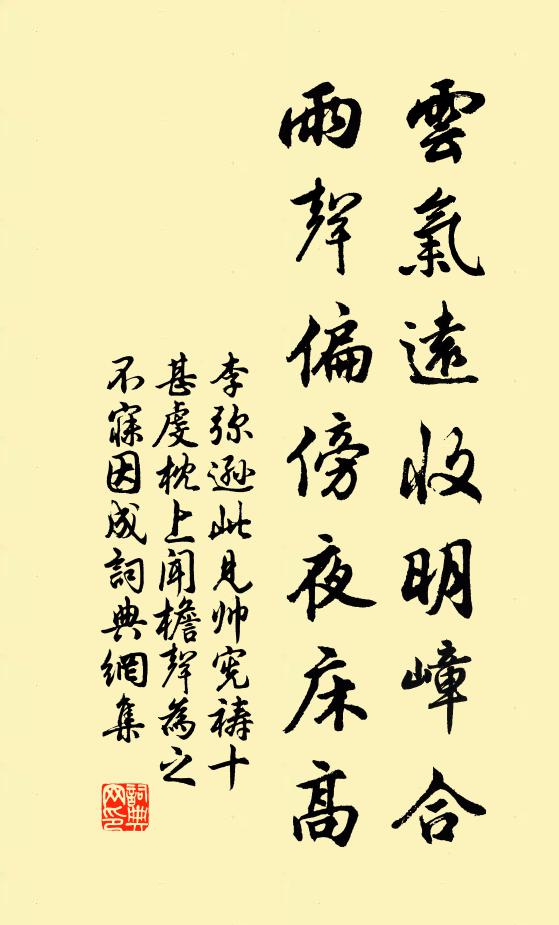 雲氣遠收明嶂合
雨聲偏傍夜床高
李弥遜此見帅宪禱十
甚虔枕上闻檐聲為之
不寐因成詞典網集
詞典
网印